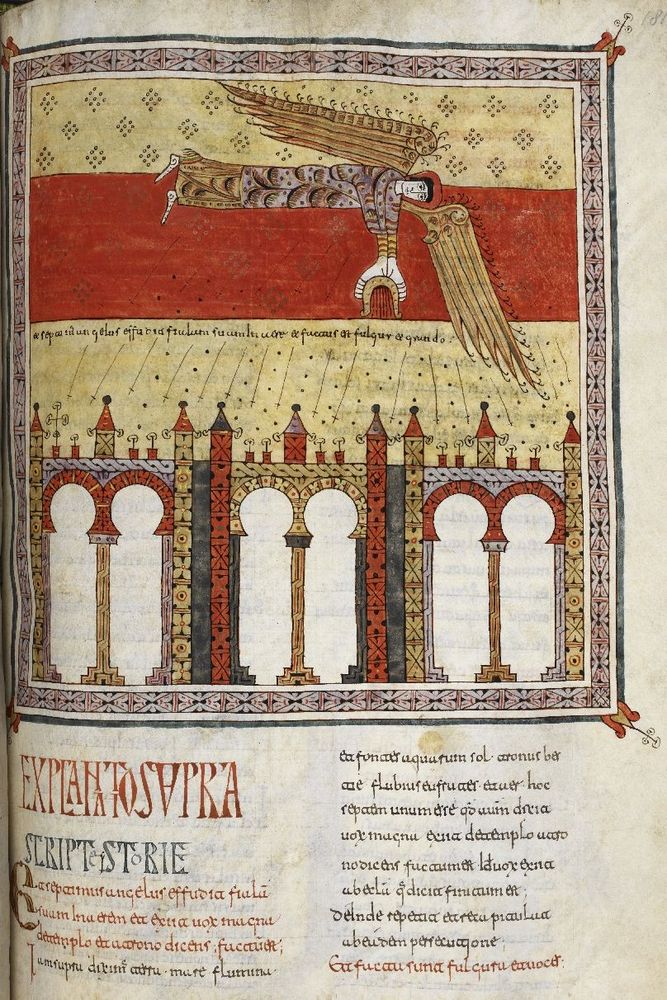 et septim̄ angelus effudit fiulam suum In aere et factus est fulgur et grando:
EXPLANATIO SVPRA
SCRIPTE STORIE
Et septimus angelus effudit fiulā
suum In aerem et exiit uox magna
de templo et a trono dicens; factum est;
Iam supra dixim͛ terra· mare flumina·
et fontes aquarum sol· tronus bes
tie flubius eufrates et aer· hoc
septem unum esse qd autem dixit
uox magna exiit de templo a tro
no dicens factum est· Id uox exiit
ab eclā q̄ dicit finitum est;
deInde repetit
ab eadem persecutione;
Et facta sunt fulgura et uoces: